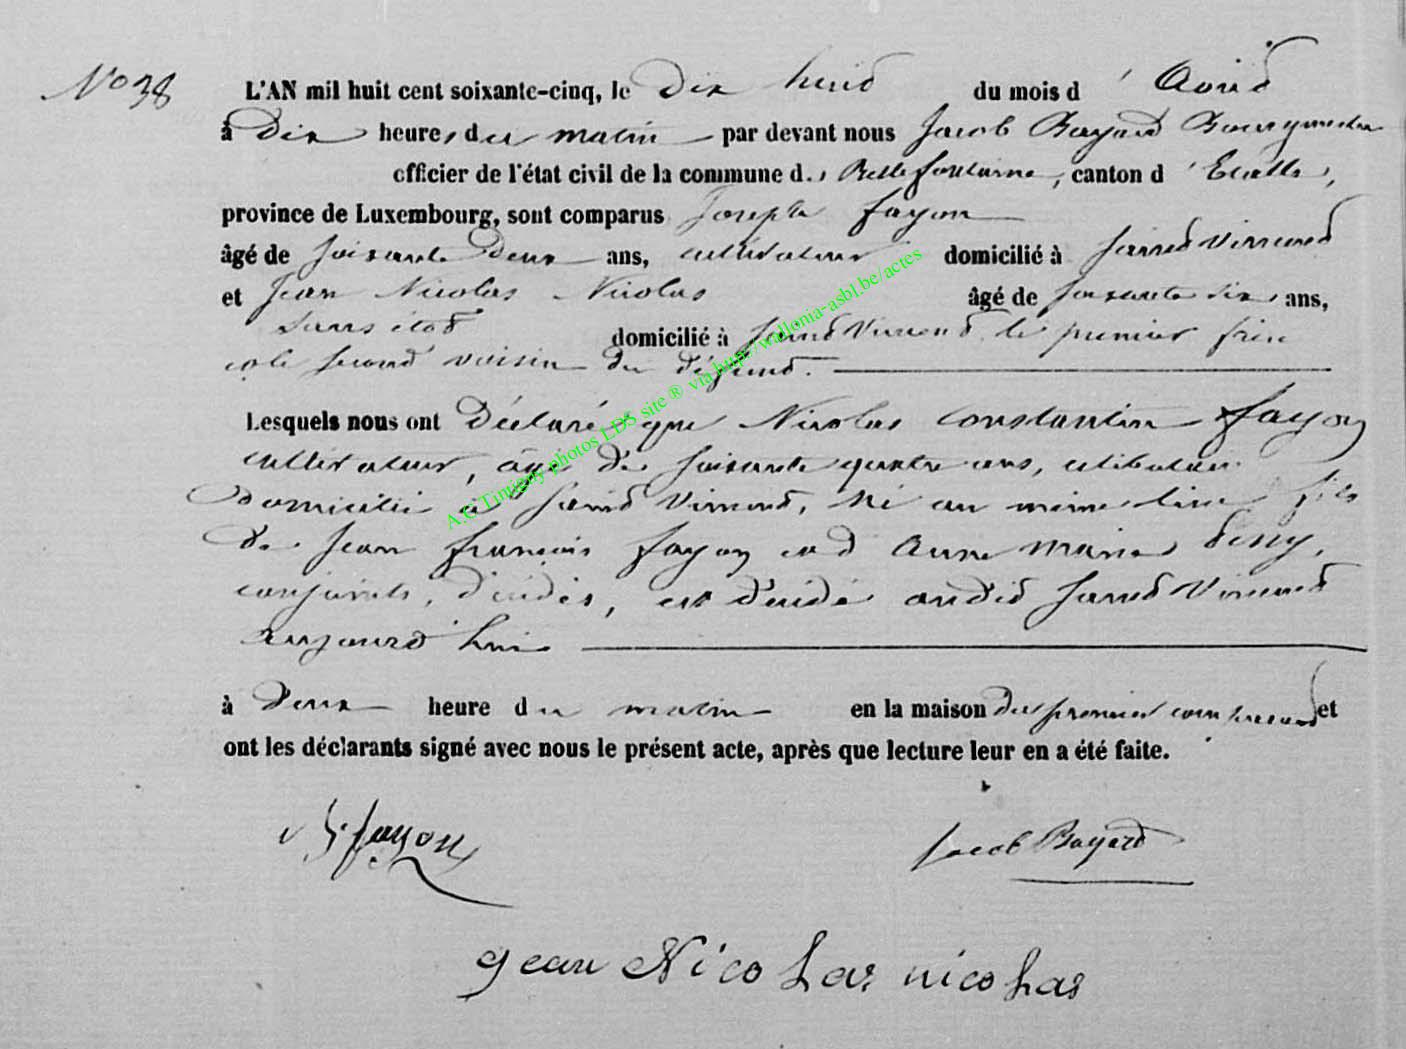 N° 38
L'AN mil huit cent soixante-cinq, le Dix huit du mois d' Avril
à Dix heures du matin par devant nous Jacob Bayard Bourgmestre
officier de l'état civil de la commune de Bellefontaine, canton d' Etalle,
province de Luxembourg, sont comparus Joseph fayon
âgé de soixante Deux ans, cultivateur domicilié à Saint Vincent
et Jean Nicolas Nicolas âgé de soixante six ans,
sans état domicilié à Saint Vincent, le premier frère
et le second voisin du défunt.
Lesquels nous ont Déclaré que Nicolas Constantin fayon
cultivateur, âgé De soixante quatre ans, cultivateur
Domicilié à Saint Vincent, Né au même lieu fils
De Jean françois fayon et d' Anne Marie
conjoints, Décédés, est Décédé audit Saint Vincent
aujourd'hui
à Deux heure du matin en la maison Du premier comparant et
ont les déclarants signé avec nous le présent acte, après que lecture leur en a été faite.
J. fayon Jacob Bayard
jean Nicolas nicolas
A.G Tintigny photos LDS site ® via http://wallonia-asbl.be/actes